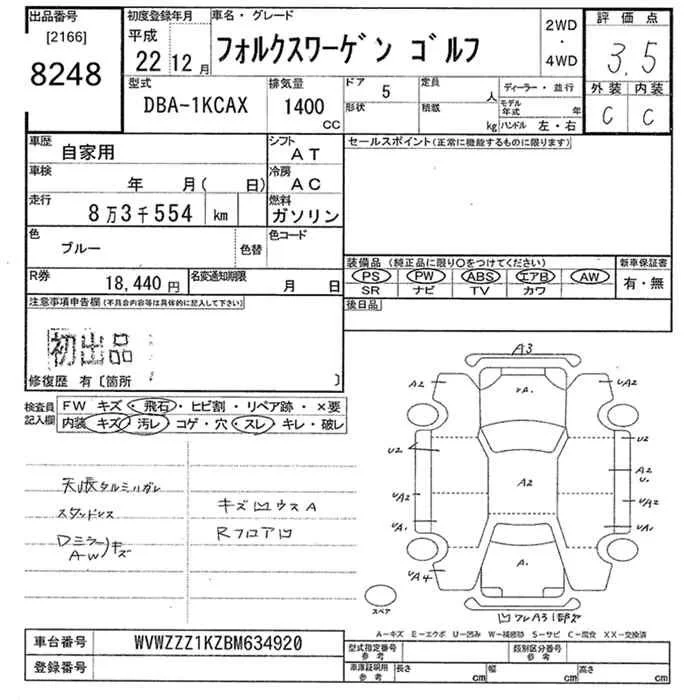 出品番号
[2166]
8248
初度登録年月
平成
22 12月
車名・グレード
フォルクスワーゲン ゴルフ
2WD
・
4WD
評価点
3.5
外装 内装
C C
型式
DBA-1KCAX
排気量
1400
CC
ドア 5
定員 人
形状
積載 kg
ディーラー・並行
モデル年式 年
ハンドル 左・右
車歴
自家用
シフト
AT
車検
年 月( 日)
冷房
AC
走行
8万3千554 km
燃料
ガソリン
色
ブルー
色替
色コード
R券
18,440 円
名変通知期限
月 日
セールスポイント(正常に機能するものに限ります)
装備品 (純正品に限り○をつけてください)
新車保証書
PS PW ABS エアB AW
有・無
SR ナビ TV カワ
後日品
注意事項申告欄(不具合内容等は具体的に記入して下さい)
初出品
修復歴 有〔箇所 〕
検査員記入欄
FW キズ・飛石・ヒビ割・リペア跡・×要
内装 キズ・汚レ・コゲ・穴・スレ・キレ・破レ
天張タルミハガレ
スタッドレス
Dミラー
AW
キズ
キズ凹ウスA
Rフロア凹
A3
A2
UA.
UA2
U2
U2
A2
A2
U.
UA2
UA2
UA.
UA.
A.
UA4
スペア
凹ワレA3 1部欠
A-キズ E-エクボ U-凹み W-補修跡 S-サビ C-腐食 XX-交換済
車台番号
WVWZZZ1KZBM634920
登録番号
型式指定番号
参考
類別区分番号
参考
車庫証明用
参考
長さ cm
幅 cm
高さ cm